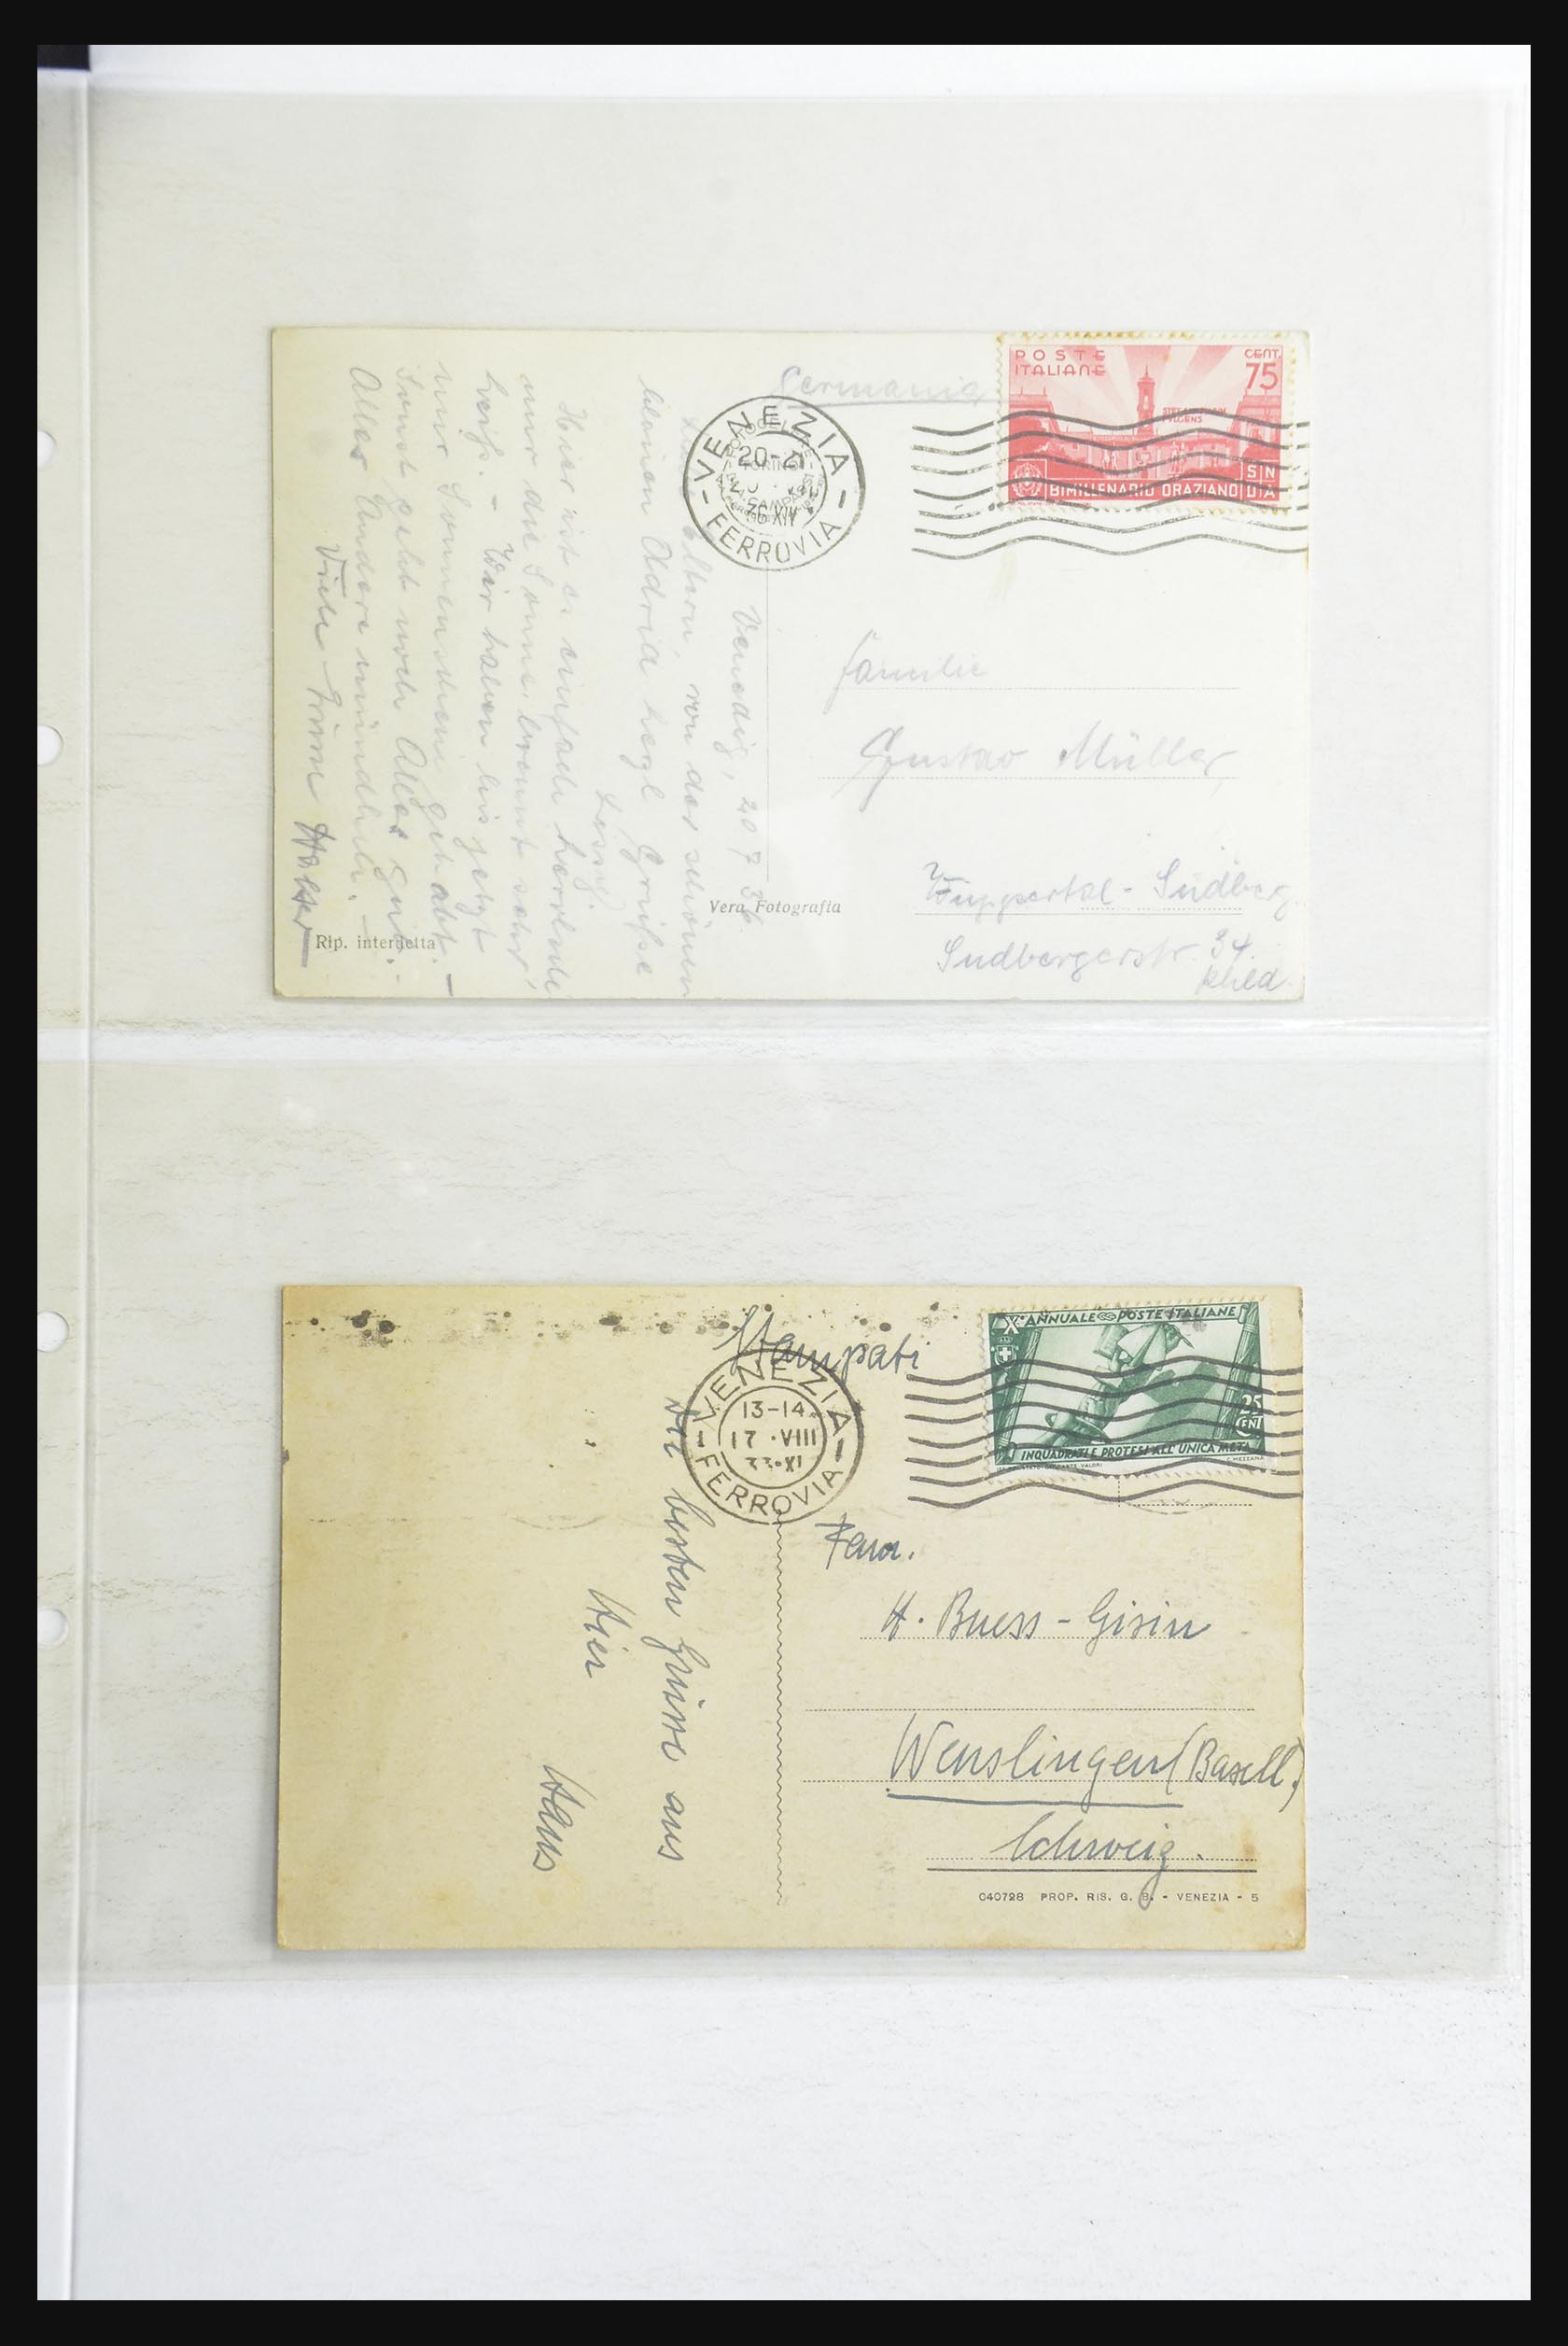 Germania
POSTE
ITALIANE
CENT.
75
BIMILLENARIO ORAZIANO
SN
DIA
VENEZIA
20-21
36 XIV
FERROVIA
Venedig, 20 7 36.
Eltern, von der schönen
blauen Adria herzl Grüsse
Hier ist es einfach herrlich
nur die Sonne brennt sehr,
heiß. - Wir haben bis jetzt
nur Sonnenschein gehabt. -
Sonst geht noch Alles gut. -
Alles Andere mündlich. -
Viele Grüsse Walter
Familie
Gustav Müller,
Wuppertal - Sudberg
Sudbergerstr. 34.
Rhld
Vera Fotografia
Rip. interdetta
Stampati
X° ANNUALE POSTE ITALIANE
25
CENT
INQUADRATI E PROTESI ALL'UNICA META
C. MEZZANA
VENEZIA
13-14
17 ·VIII
33·XI
FERROVIA
Die besten Grüsse aus
Hier
Hans
Fam.
H. Buess - Gisin
Wenslingen (Basell.)
Schweiz.
040728 PROP. RIS. G. B. - VENEZIA - 5